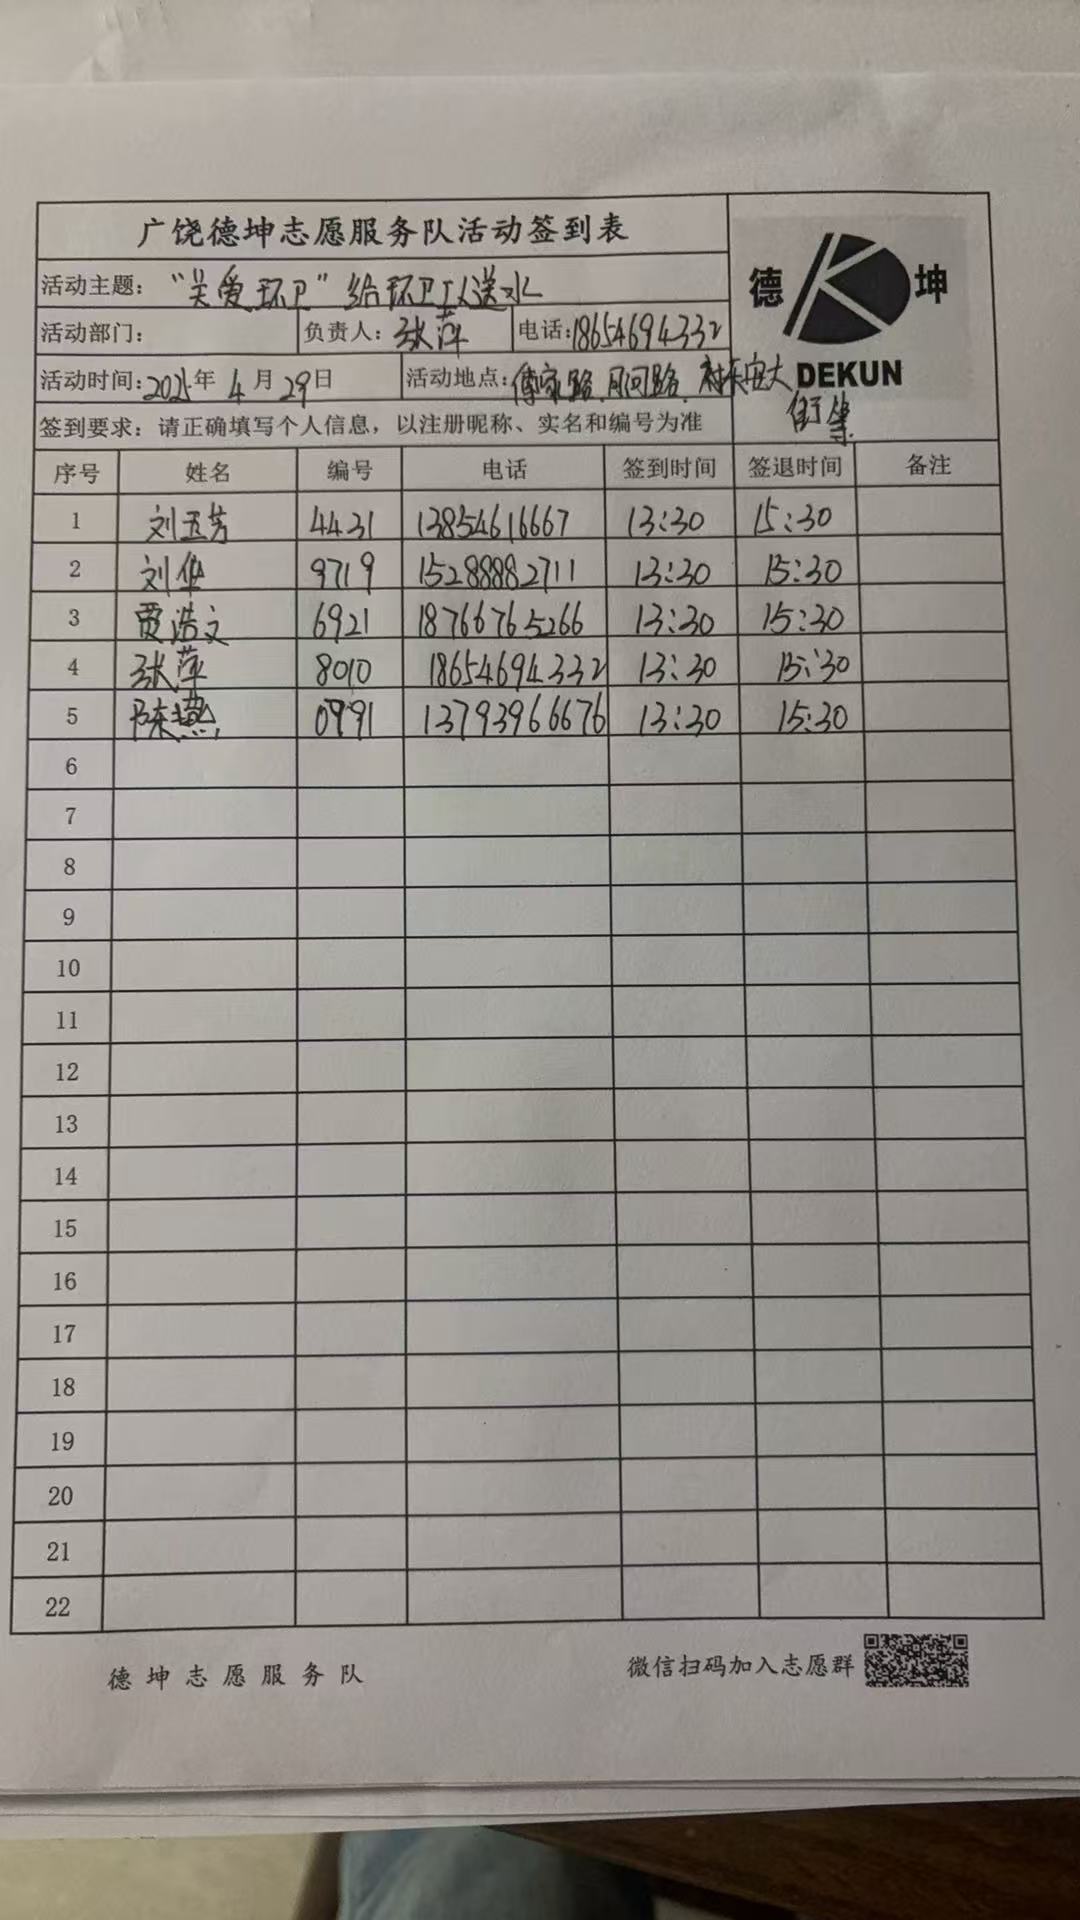 广饶德坤志愿服务队活动签到表
德 坤
DEKUN
活动主题：“关爱环卫”给环卫工人送水
活动部门： 负责人：张萍 电话:18654694332
活动时间:2025年 4月29日 活动地点：傅家路、月河路、 大
街等
签到要求：请正确填写个人信息，以注册昵称、实名和编号为准
序号 姓名 编号 电话 签到时间 签退时间 备注
1 刘玉芳 4431 13854616667 13:30 15:30
2 刘华 9719 15288882711 13:30 15:30
3 贾浩文 6921 18766765266 13:30 15:30
4 张萍 8010 18654694332 13:30 15:30
5 陈燕 0991 13793966676 13:30 15:30
6
7
8
9
10
11
12
13
14
15
16
17
18
19
20
21
22
德坤志愿服务队 微信扫码加入志愿群